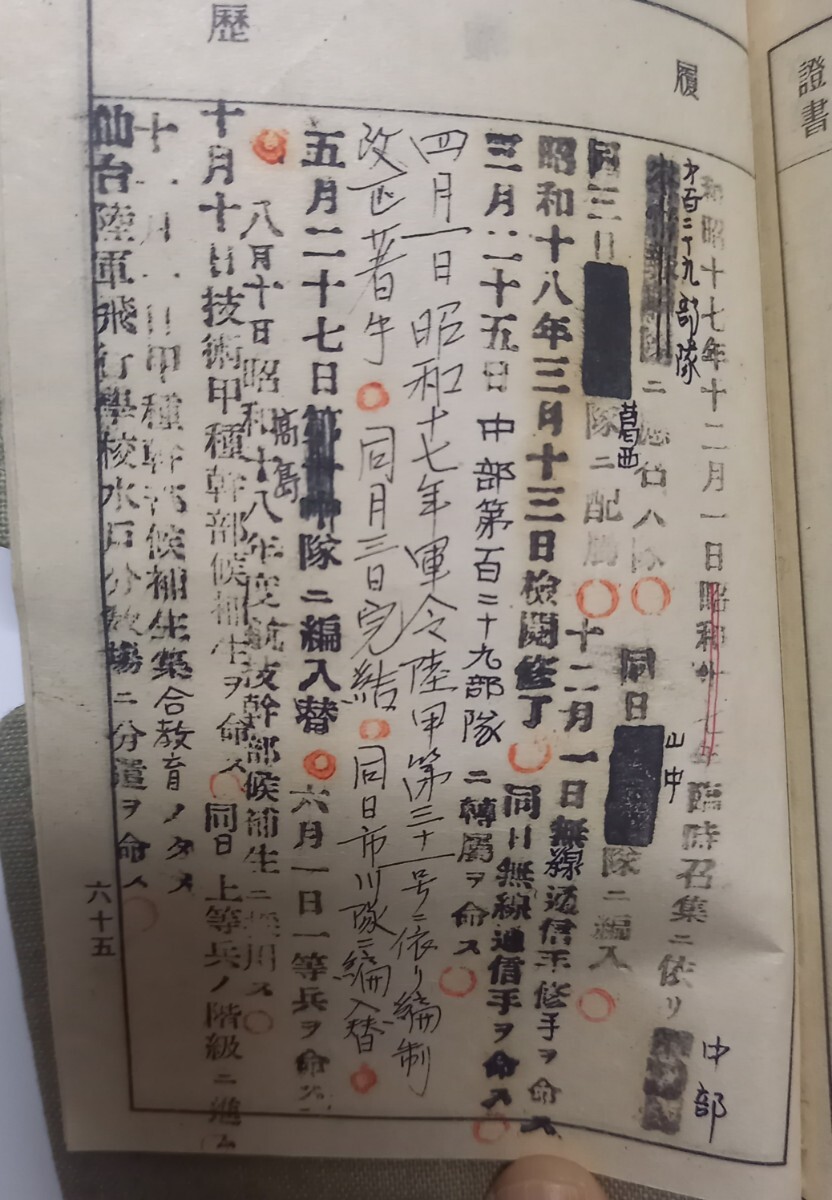 履
歴
昭和十七年十二月一日昭和十七年臨時召集ニ依リ中部
第百二十九部隊ニ應召入隊〇同日山中隊ニ編入〇
同三日葛西隊ニ配属〇十二月一日無線通信手修手ヲ命ス
昭和十八年三月十三日検閲修了〇同日無線通信手ヲ命ス〇
三月二十五日中部第百二十九部隊ニ轉属ヲ命ス〇
四月一日昭和十七年軍令陸甲第三十一号ニ依リ編制
改正著手〇同月三日完結〇同日市川隊ニ編入替〇
五月二十七日高島隊ニ編入替〇六月一日一等兵ヲ命ス
〇八月十日昭和十八年度航技幹部候補生ニ採用ス〇
十月十日技術甲種幹部候補生ヲ命ス〇同日上等兵ノ階級ニ進ム
十一月一日甲種幹部候補生集合教育ノタメ
仙台陸軍飛行學校水戸分教場ニ分遣ヲ命ス〇
六十五
證書